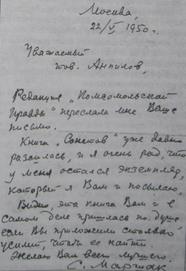 Москва,
22/V 1950 г.
Уважаемый
тов. Антилов,
Редакция „Комсомольской
Правды" переслала мне Ваше
письмо.
Книга „Сонетов" уже давно
разошлась, и я очень рад, что
у меня остался экземпляр,
который я Вам и посылаю.
Видно, эта книга Вам и в
самом деле пришлась по душе,
если Вы приложили столько
усилий, чтобы ее найти.
Желаю Вам всего лучшего.
С. Маршак